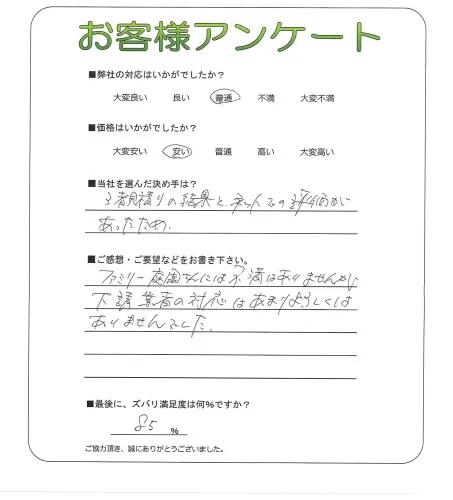 お客様アンケート
■弊社の対応はいかがでしたか？
大変良い 良い 普通 不満 大変不満
■価格はいかがでしたか？
大変安い 安い 普通 高い 大変高い
■当社を選んだ決め手は？
3者見積りの結果と、ネットなどの評価が
あったため.
■ご感想・ご要望などをお書き下さい。
ファミリー庭園さんには不満はありませんが
下請業者の対応はあまりよろしくは
ありませんでした.
■最後に、ズバリ満足度は何%ですか？
85 %
ご協力頂き、誠にありがとうございました。